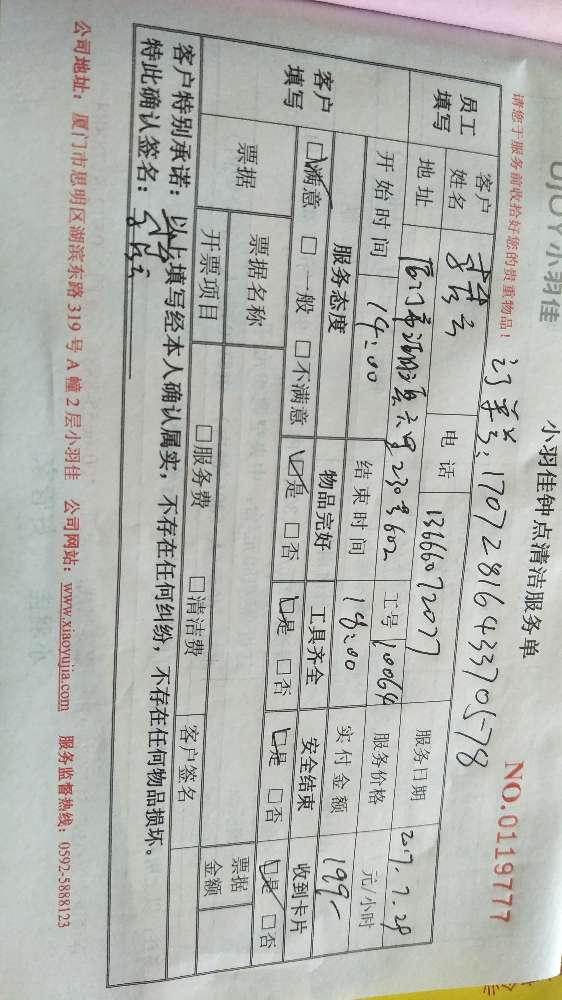 UJOY小羽佳
小羽佳钟点清洁服务单
请您于服务前收拾好您的贵重物品！
NO.0119777
订单号：1707281643370578
员工填写 客户姓名 电话 13666072077 服务日期 2017.7.29
地址 工号 10064 服务价格 元/小时
开始时间 14:00 结束时间 18:00 实付金额 199-
客户填写 服务态度 物品完好 工具齐全 安全结束 收到卡片
☑满意 □一般 □不满意 ☑是 □否 ☑是 □否 ☑是 □否 ☑是 □否
票据 票据名称 票据金额
开票项目 □服务费 □清洁费 客户签名
客户特别承诺：以上填写经本人确认属实，不存在任何纠纷，不存在任何物品损坏。
特此确认签名：
公司地址：厦门市思明区湖滨东路319号A幢2层小羽佳 公司网站：www.xiaoyujia.com 服务监督热线：0592-5888123